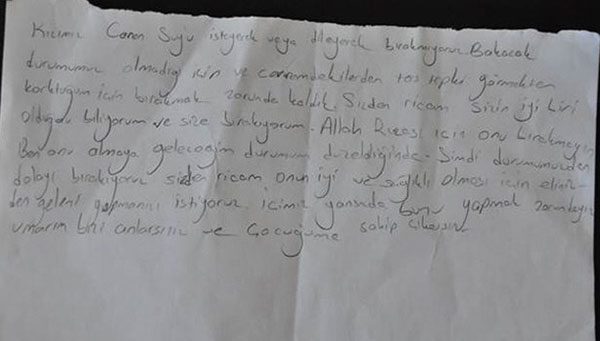 Kızımız Ceren Suyu isteyerek veya dileyerek bırakmıyoruz. Bakacak
durumumuz olmadığı için ve çevremdekilerden ters tepki görmekten
korktuğum için bırakmak zorunda kaldık. Sizden ricam sizin iyi biri
olduğunu biliyorum ve size bırakıyorum. Allah Rızası için onu bırakmayın
Ben onu almaya geleceğim durumum düzeldiğinde. Şimdi durumumuzdan
dolayı bırakıyoruz sizden ricam onun iyi ve sağlıklı olması için eliniz-
den geleni yapmanızı istiyoruz içimiz yansada bunu yapmak zorundayız
umarım bizi anlarsınız ve Çocuğuma sahip çıkarsınız